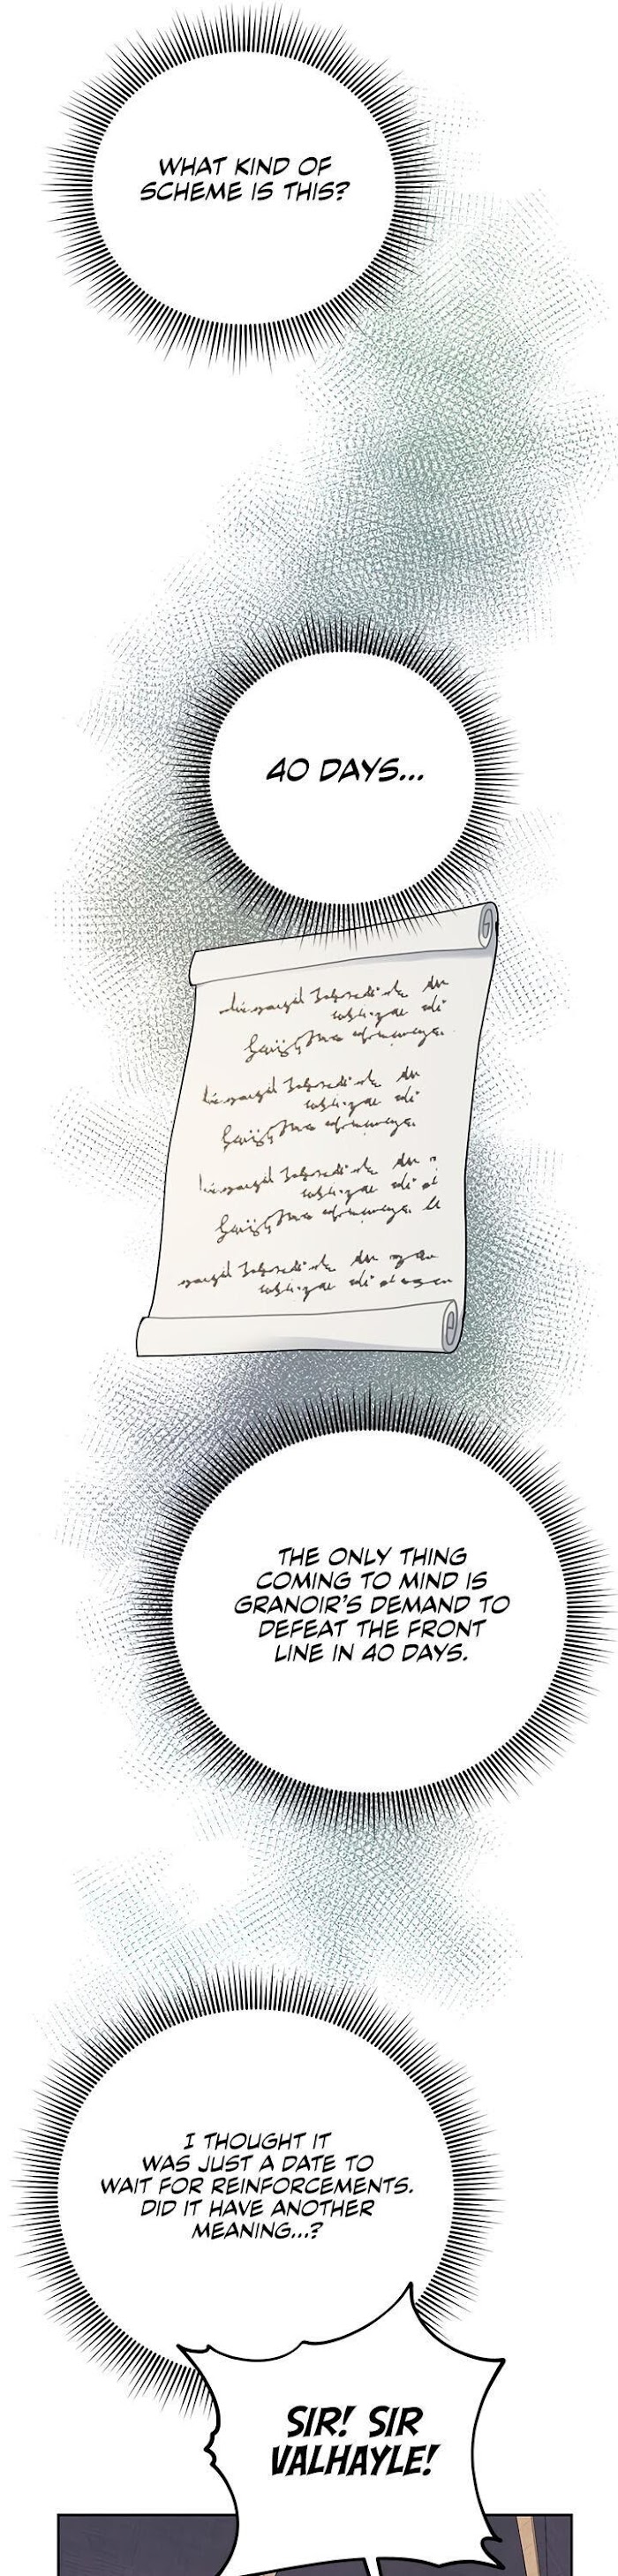 WHAT KIND OF
SCHEME IS THIS?
40 DAYS...
THE ONLY THING
COMING TO MIND IS
GRANOIR'S DEMAND TO
DEFEAT THE FRONT
LINE IN 40 DAYS.
I THOUGHT IT
WAS JUST A DATE TO
WAIT FOR REINFORCEMENTS.
DID IT HAVE ANOTHER
MEANING...?
SIR! SIR
VALHAYLE!